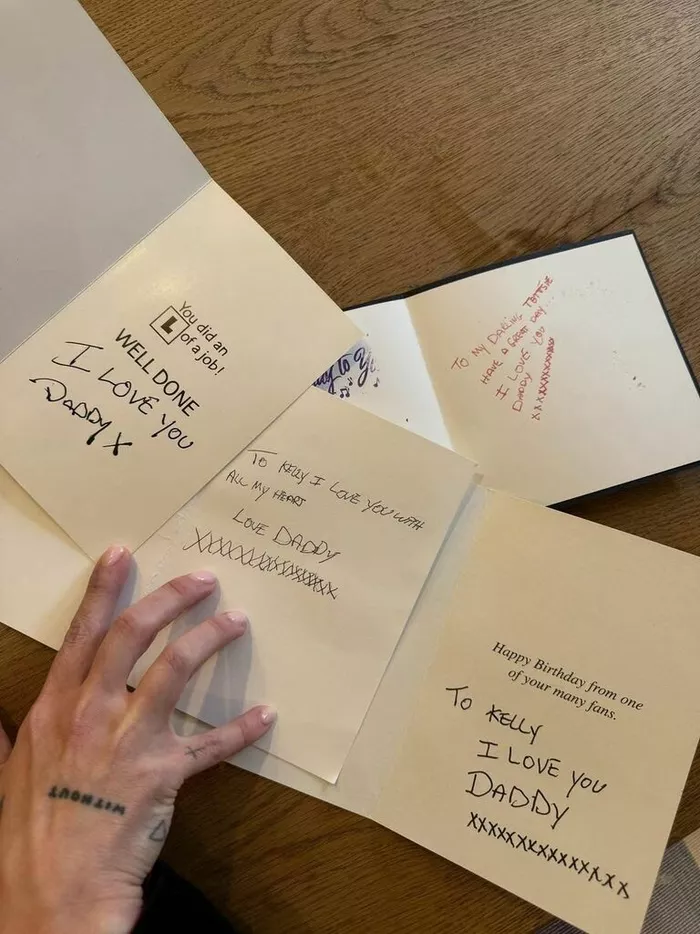 You did an
L of a job!
WELL DONE
I LOVE YOU
DADDY X
TO MY DARLING TOTTSIE
HAVE A GREAT DAY...
I LOVE YOU
DADDY
XXXXXXXXXXXX
to Yo
TO KELLY I LOVE YOU WITH
ALL MY HEART
LOVE DADDY
XXXXXXXXXXXXXXXX
Happy Birthday from one
of your many fans.
TO KELLY
I LOVE YOU
DADDY
XXXXXXXXXXXXXXX
WITHOUT